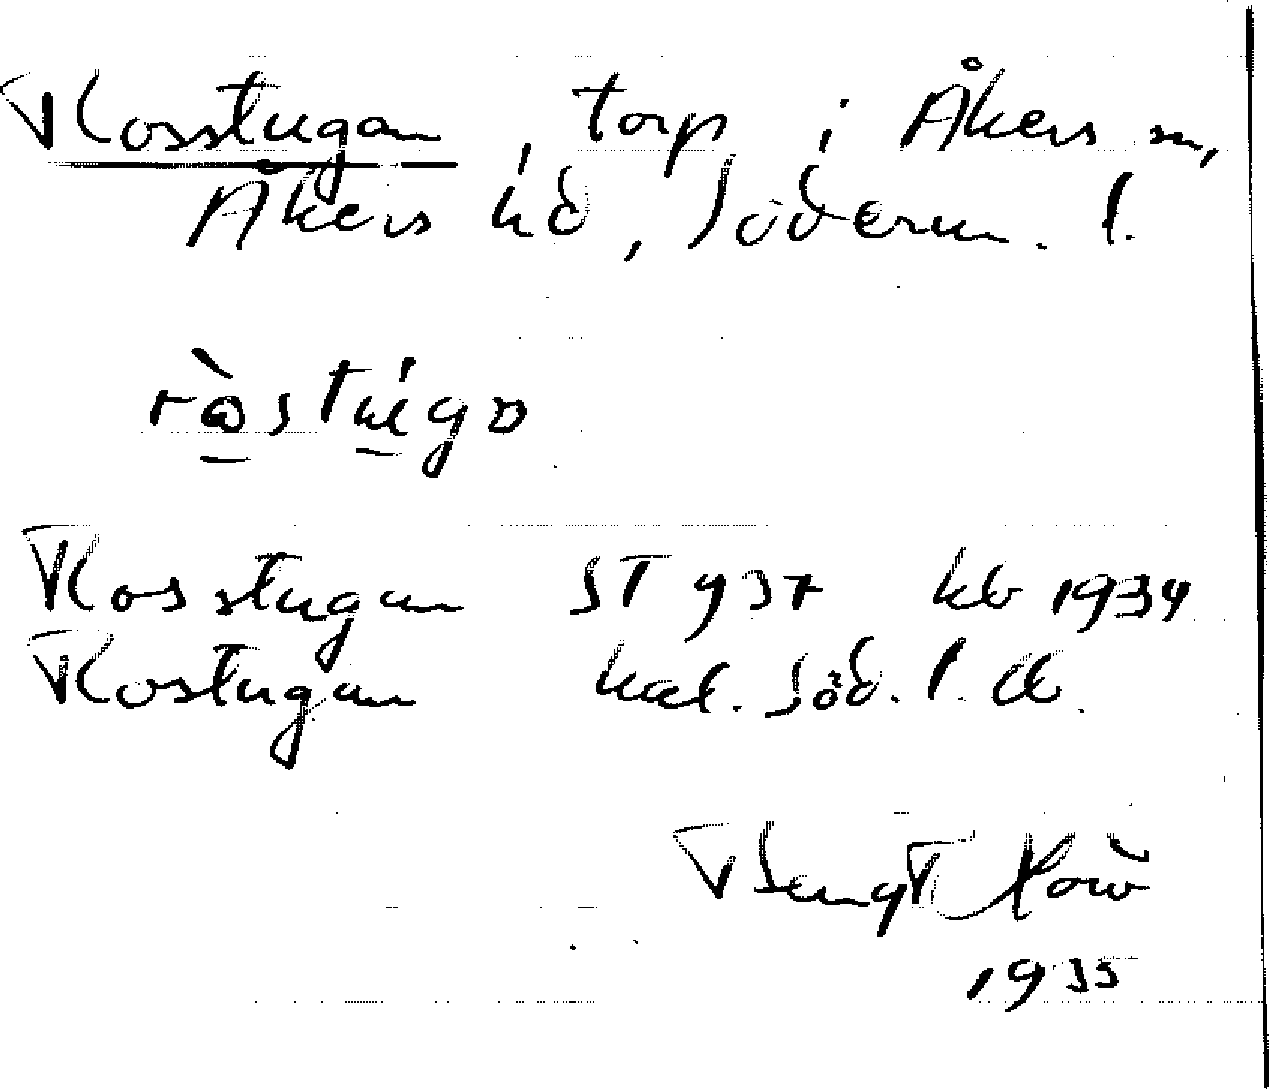 Rosstugan, torp i Åkers sn,
Åkers hd, Söderm. l.
ròstúgɒ
Rosstugan ST 937 kb 1934
Rostugan
Bengt
1935